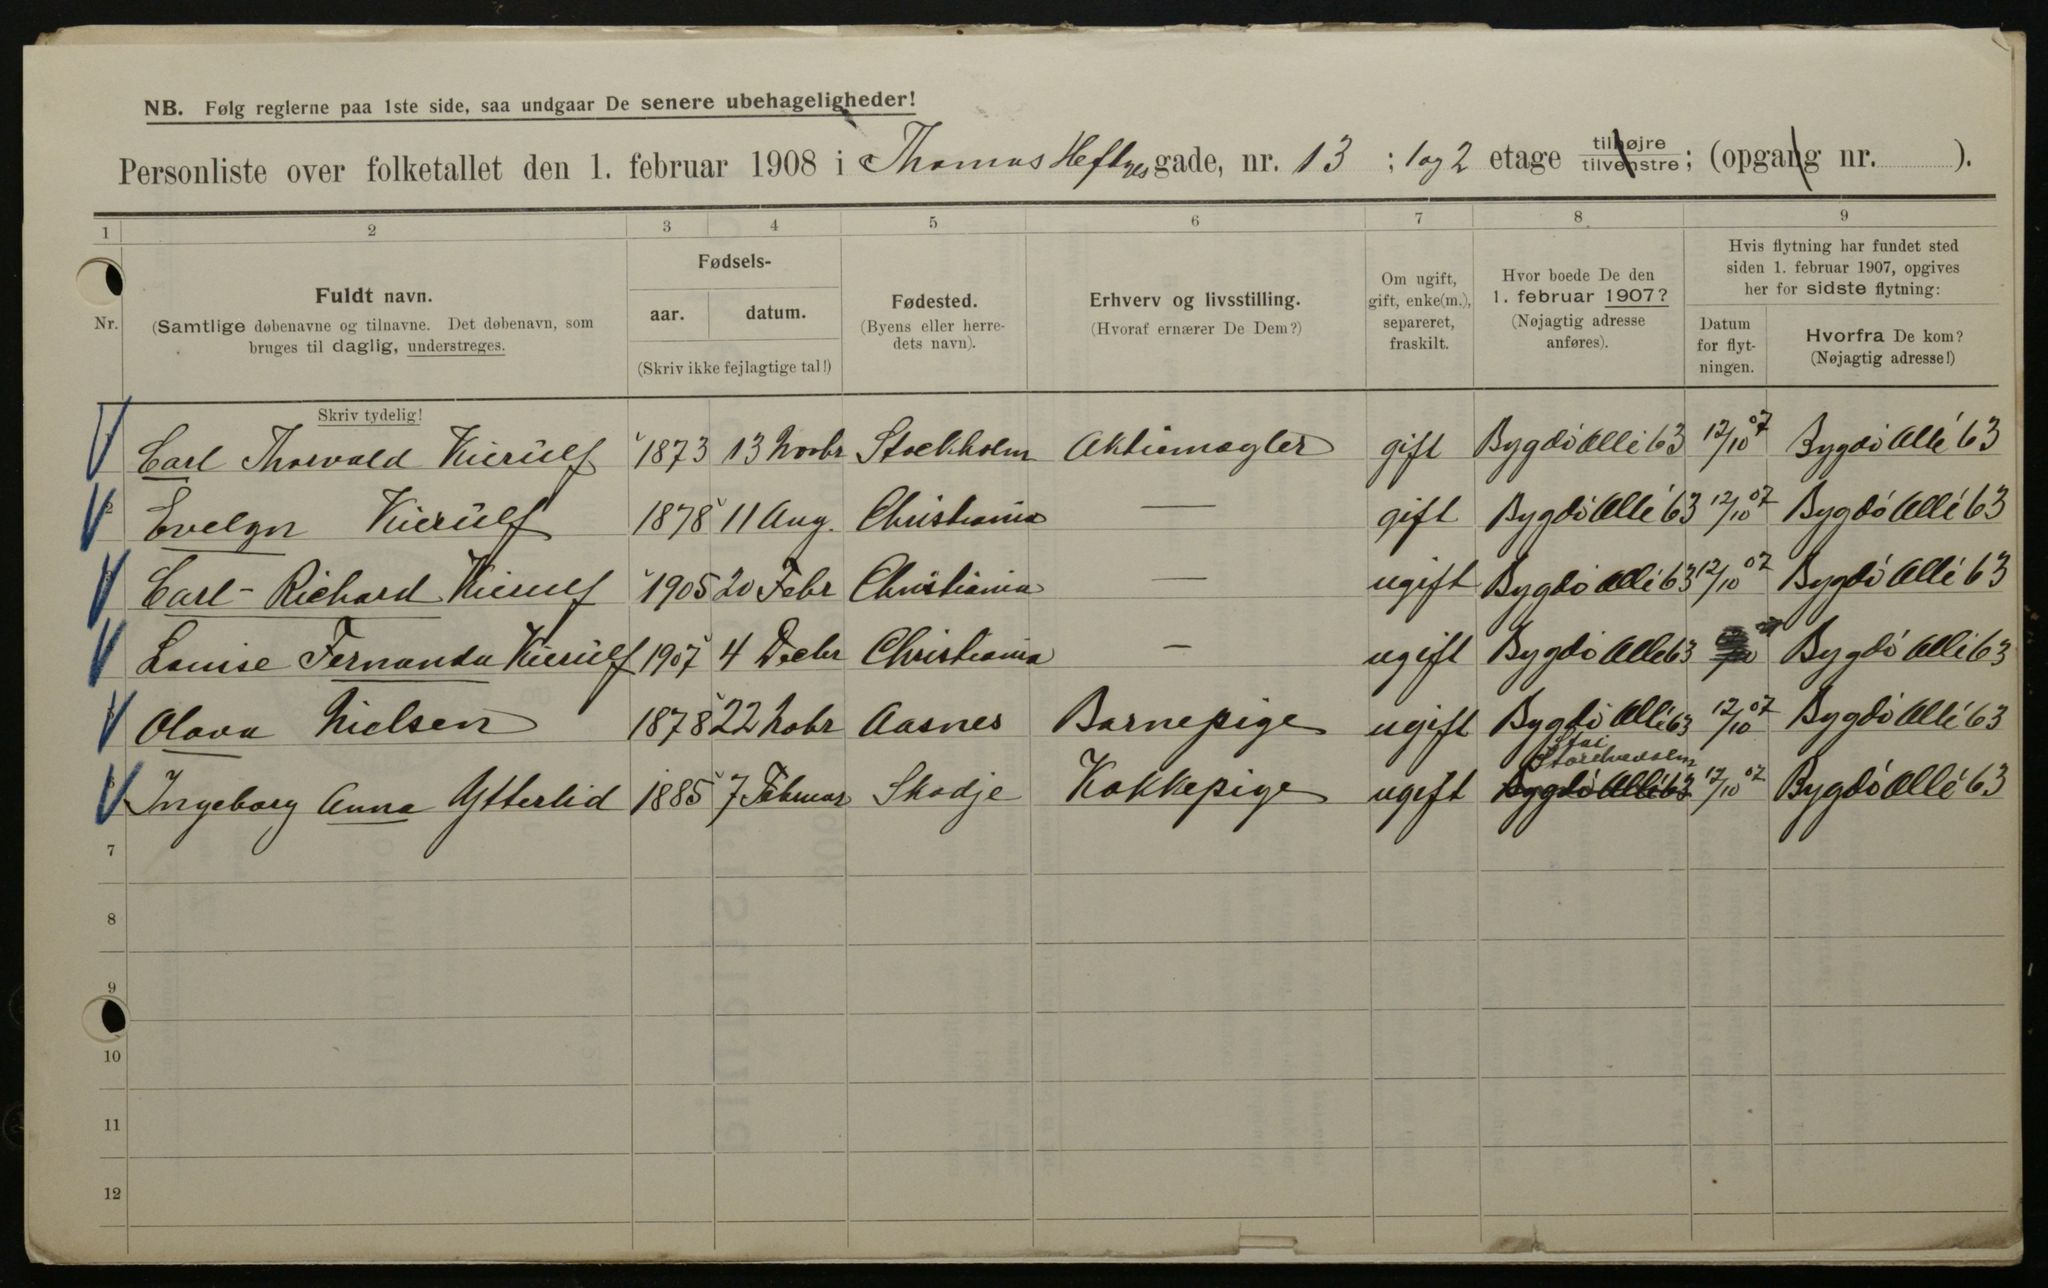 NB. Følg reglerne paa 1ste side, saa undgaar De senere ubehageligheder!
Personliste over folketallet den 1. februar 1908 i Thomas Heftyes gade, nr. 13 ; 1 og 2 etage tilhøjre tilvenstre; (opgang nr. ).
1 2 3 4 5 6 7 8 9
Nr.
Fuldt navn.
(Samtlige døbenavne og tilnavne. Det døbenavn, som
bruges til daglig, understreges.
Skriv tydelig!
Fødsels-
aar. datum.
(Skriv ikke fejlagtige tal!)
Fødested.
(Byens eller herre-
dets navn).
Erhverv og livsstilling.
(Hvoraf ernærer De Dem?)
Om ugift,
gift, enke(m.),
separeret,
fraskilt.
Hvor boede De den
1. februar 1907?
(Nøjagtig adresse
anføres).
Hvis flytning har fundet sted
siden 1. februar 1907, opgives
her for sidste flytning:
Datum
for flyt-
ningen.
Hvorfra De kom?
(Nøjagtig adresse!)
Carl Thorvald Kierulf 1873 13 Novbr Stockholm Aktiemægler gift Bygdö Allé 63 12/10 07 Bygdö Allé 63
2 Evelyn Kierulf 1878 11 Aug. Christiania — gift Bygdö Allé 63 12/10 07 Bygdö Allé 63
Carl-Richard Kierulf 1905 20 Febr Christiania — ugift Bygdö Allé 63 12/10 07 Bygdö Allé 63
Louise Fernanda Kierulf 1907 4 Decbr Christiania — ugift Bygdö Allé 63 Bygdö Allé 63
Olava Nielsen 1878 22 Nobr Aasnes Barnepige ugift Bygdö Allé 63 12/10 07 Bygdö Allé 63
Ingeborg Anna Ytterlid 1885 7 Februar Skodje Kokkepige ugift Bygdö Allé 63 12/10 07 Bygdö Allé 63
7
8
9
10
11
12